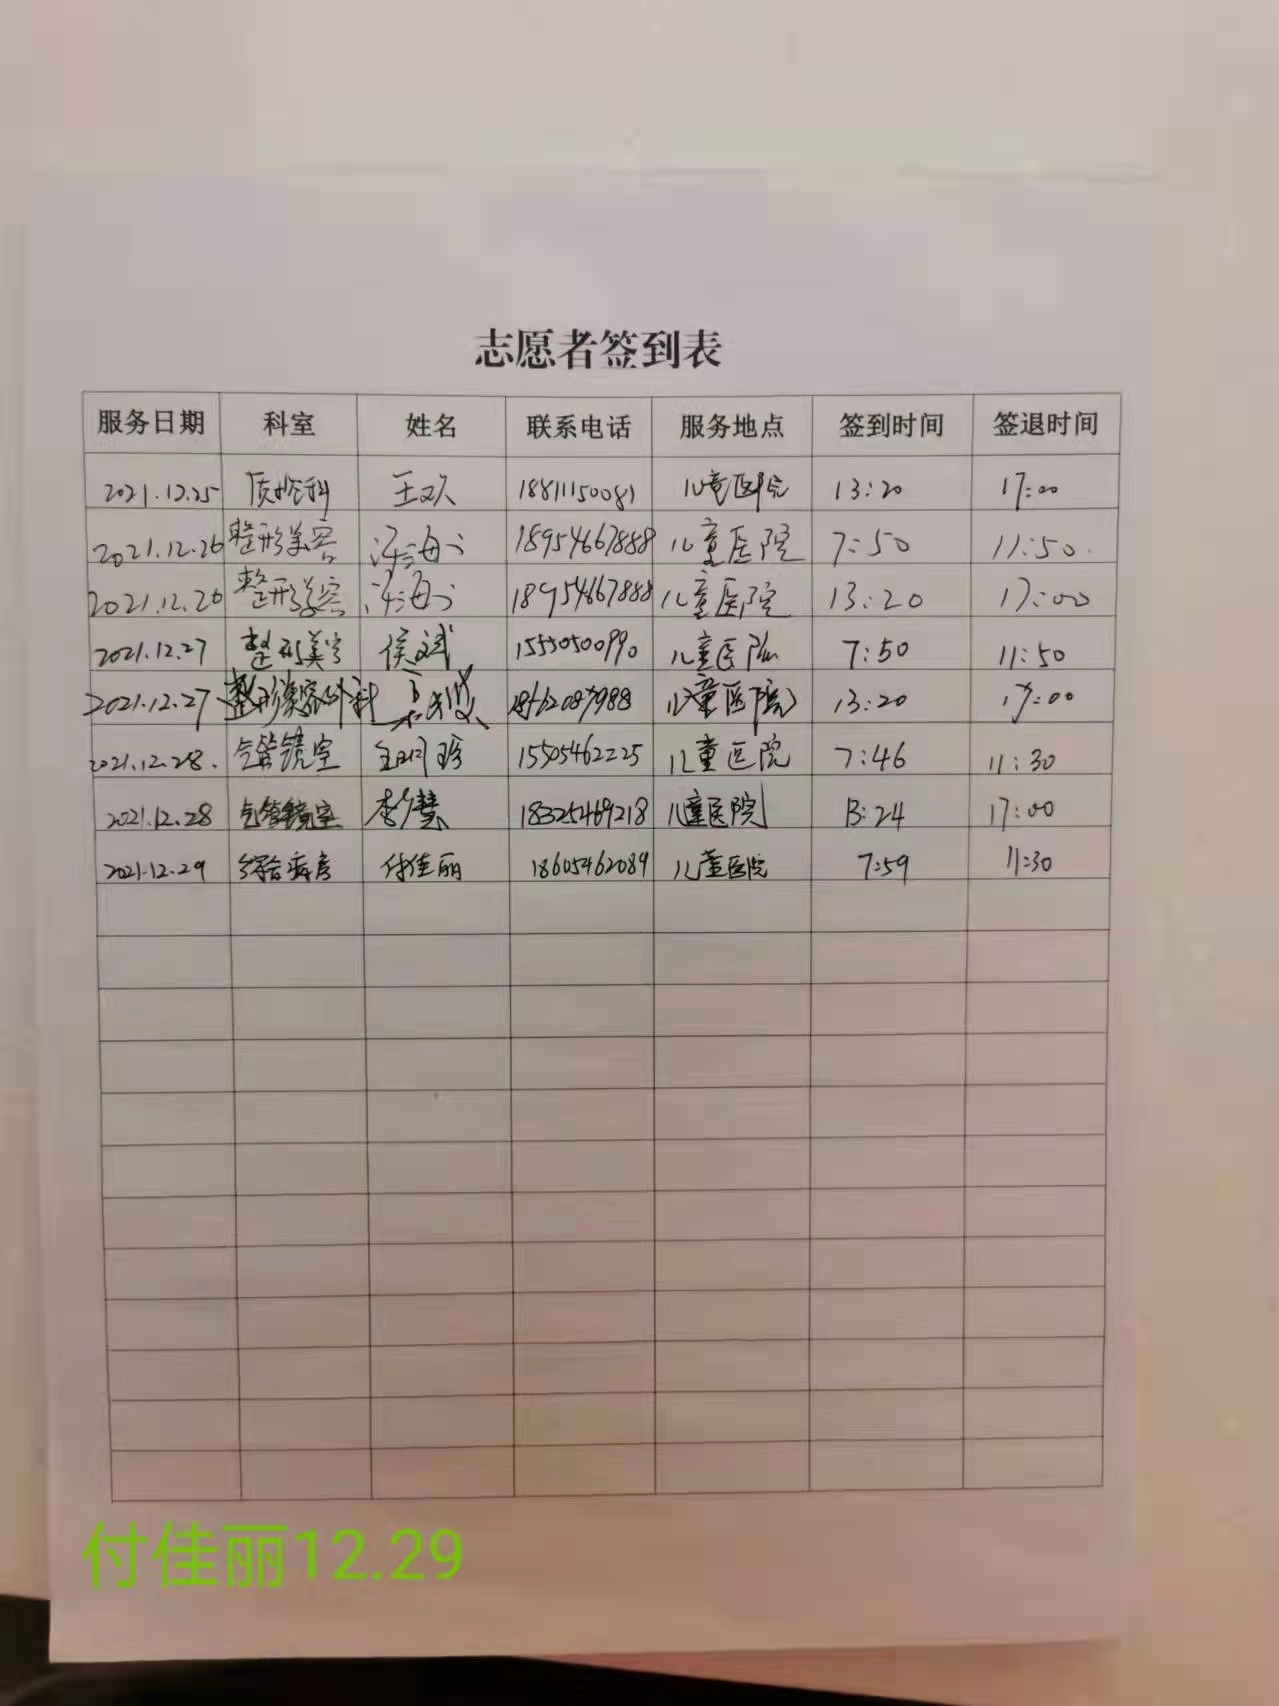 志愿者签到表
服务日期 科室 姓名 联系电话 服务地点 签到时间 签退时间
2021.12.25 质控科 王欢 18811150081 儿童医院 13:20 17:00
2021.12.26 整形美容 海 18954667888 儿童医院 7:50 11:50
2021.12.26 整形美容 海 18954667888 儿童医院 13:20 17:00
2021.12.27 整形美容 侯斌 15550500990 儿童医院 7:50 11:50
2021.12.27 整形美容外科 儿童医院 13:20 17:00
2021.12.28. 气管镜室 15505462225 儿童医院 7:46 11:30
2021.12.28 气管镜室 李慧 18325469218 儿童医院 13:24 17:00
2021.12.29 综合病房 付佳丽 18605462089 儿童医院 7:59 11:30
付佳丽12.29